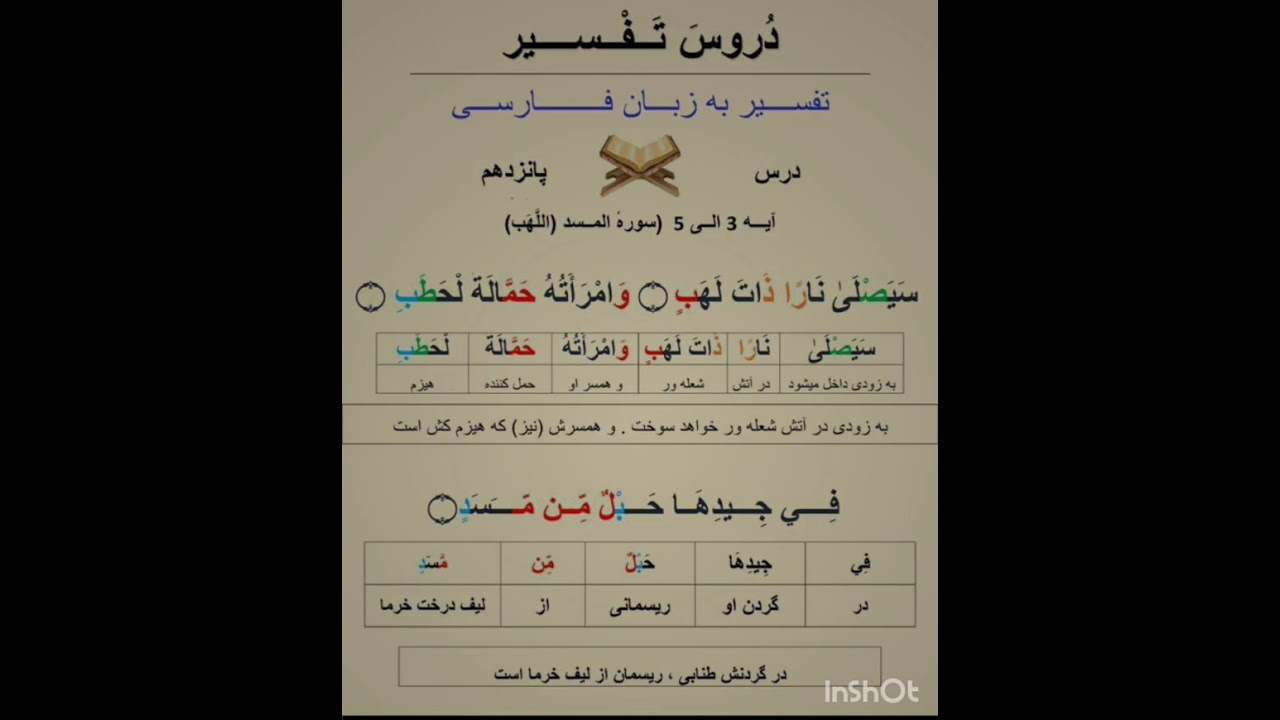 دُروسَ تَـفْـســـیر
تفســـیر به زبـــان فـــــــارســـی
درس پانزدهم
آیـــه 3 الــی 5 (سورهٔ المــسد (اللَّهَب)
سَيَصْلَىٰ نَارًا ذَاتَ لَهَبٍ ۝ وَامْرَأَتُهُ حَمَّالَةَ لْحَطَبِ ۝
سَيَصْلَىٰ نَارًا ذَاتَ لَهَبٍ وَامْرَأَتُهُ حَمَّالَةَ لْحَطَبِ
به زودی داخل میشود در آتش شعله ور و همسر او حمل کننده هیزم
به زودی در آتش شعله ور خواهد سوخت . و همسرش (نیز) که هیزم کش است
فِـــي جِـــيدِهَــا حَـــبْلٌ مِّـــن مَّـــسَدٍ ۝
فِي جِيدِهَا حَبْلٌ مِّن مَّسَدٍ
در گردن او ریسمانی از لیف درخت خرما
در گردنش طنابی ، ریسمان از لیف خرما است
InShOt